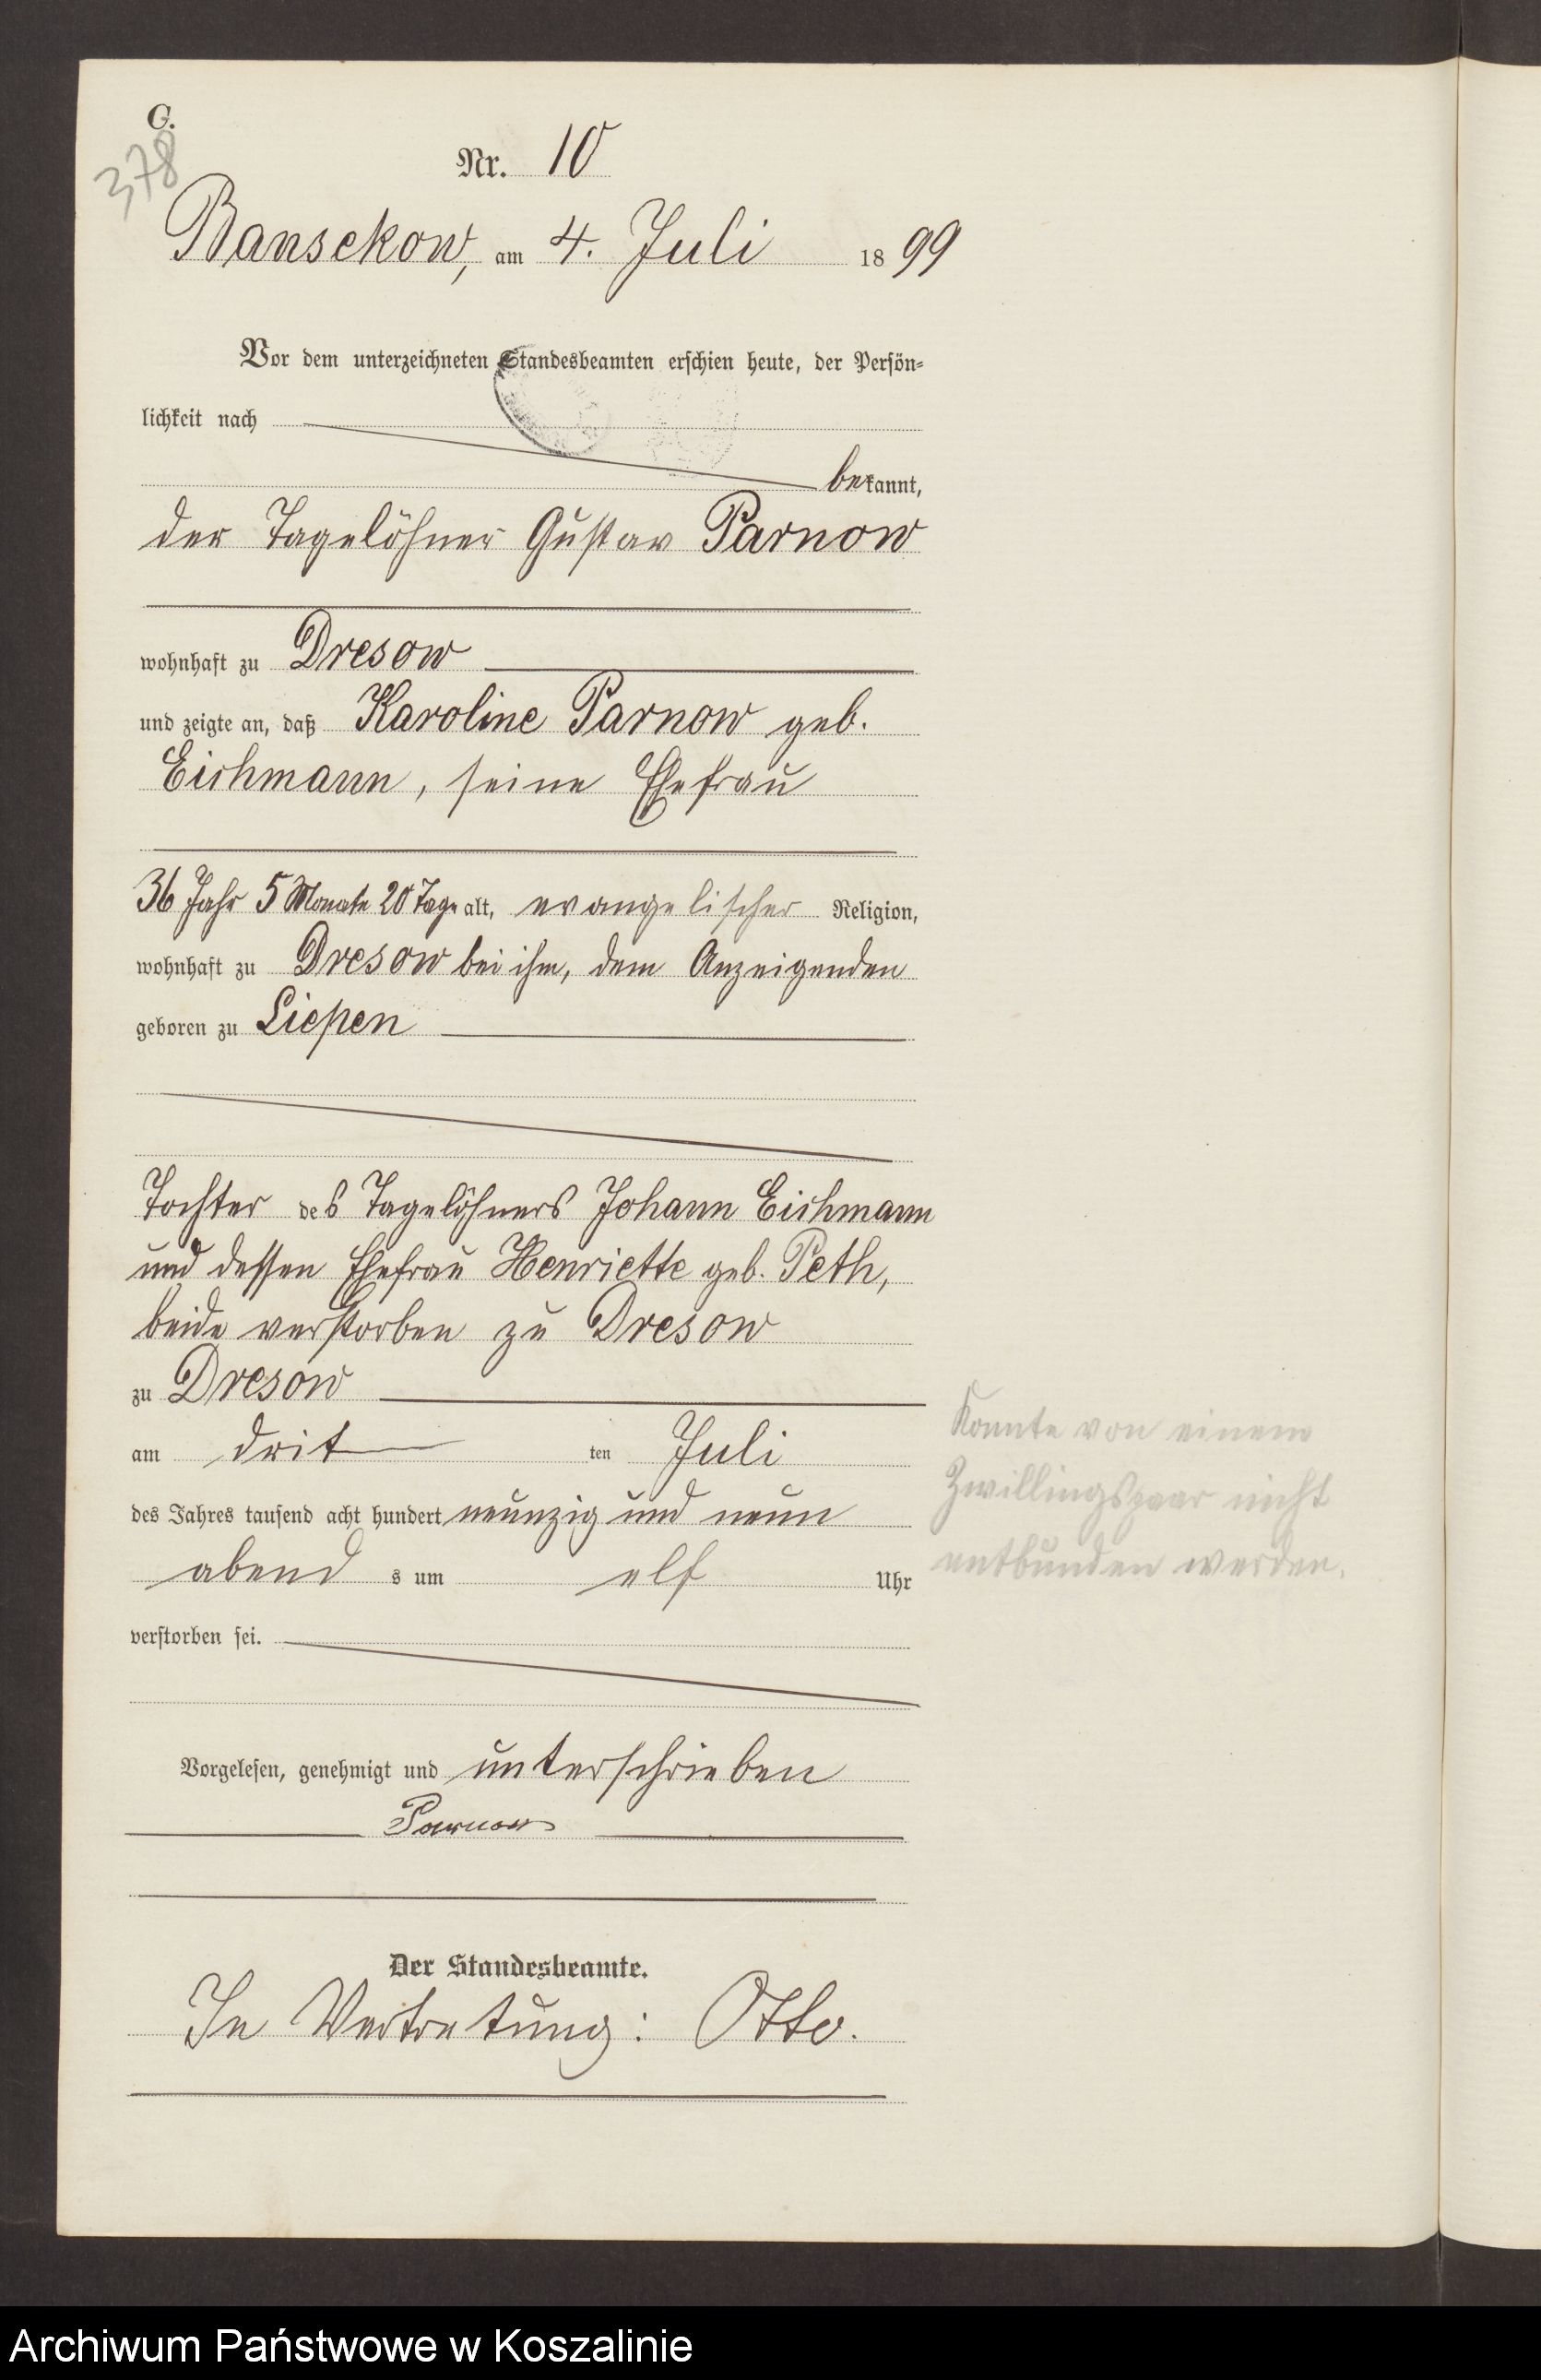 C.
378
Nr. 10
Bansekow, am 4. Juli 1899
Vor dem unterzeichneten Standesbeamten erschien heute, der Persön-
lichkeit nach
bekannt,
der Tagelöhner Gustav Parnow
wohnhaft zu Dresow
und zeigte an, daß Karoline Parnow geb.
Eichmann, seine Ehefrau
36 Jahr 5 Monate 20 Tage alt, evangelischer Religion,
wohnhaft zu Dresow bei ihm, dem Anzeigenden
geboren zu Liepen
Tochter des Tagelöhners Johann Eichmann
und dessen Ehefrau Henriette geb. Peth,
beide verstorben zu Dresow
zu Dresow
am drit ten Juli
des Jahres tausend acht hundert neunzig und neun
abend s um elf Uhr
verstorben sei.
Konnte von einem
Zwillingspaar nicht
entbunden werden.
Vorgelesen, genehmigt und unterschrieben
Parnow
Der Standesbeamte.
In Vertretung: Otto.
Archiwum Państwowe w Koszalinie